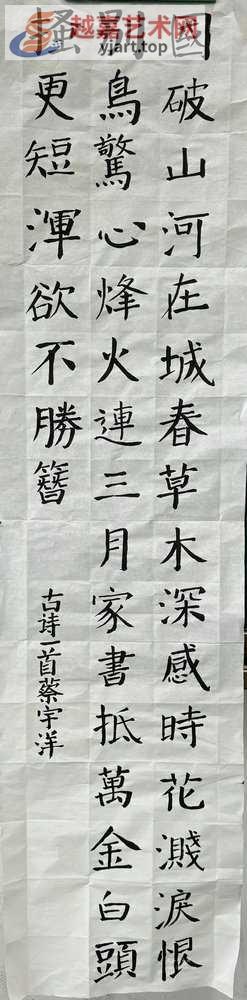 越嘉艺术网
yjart.top.com
國破山河在城春草木深感時花濺淚恨
別鳥驚心烽火連三月家書抵萬金白頭
搔更短渾欲不勝簪
古诗一首蔡宇洋